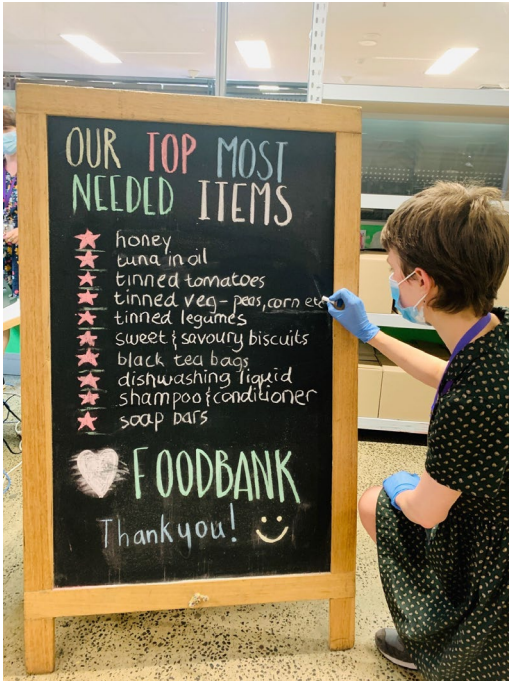 OUR TOP MOST
NEEDED ITEMS
honey
tuna in oil
tinned tomatoes
tinned veg - peas, corn etc
tinned legumes
sweet & savoury biscuits
black tea bags
dishwashing liquid
shampoo & conditioner
soap bars
FOODBANK
Thankyou!